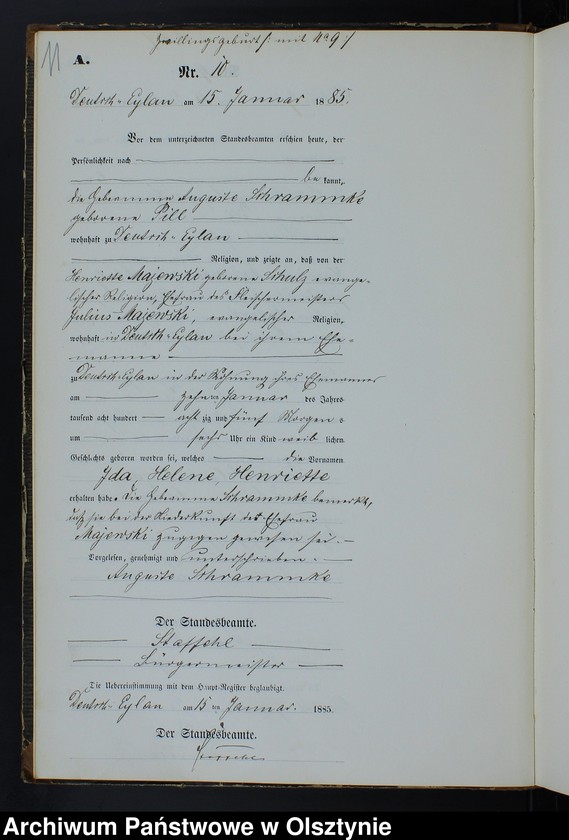 Zwillingsgeburt /: mit No 9 :/
11
A.
Nr. 10.
Deutsch-Eylau am 15. Januar 1885.
Vor dem unterzeichneten Standesbeamten erschien heute, der
Persönlichkeit nach
be kannt,
die Hebamme Auguste Schrammke
geborene Pill
wohnhaft zu Deutsch-Eylau
Religion, und zeigte an, daß von der
Henriette Majewski geborene Schulz evange-
lischer Religion, Ehefrau des Fleischermeisters
Julius Majewski, evangelischer Religion,
wohnhaft in Deutsch-Eylau bei ihrem Ehe-
manne
zu Deutsch-Eylau in der Wohnung ihres Ehemannes
am zehnten Januar des Jahres
tausend acht hundert acht zig und fünf Morgens
um sechs Uhr ein Kind weib lichen
Geschlechts geboren worden sei, welches die Vornamen
Ida, Helene, Henriette
erhalten habe. Die Hebamme Schrammke bemerkte,
daß sie bei der Niederkunft der Ehefrau
Majewski zugegen gewesen sei.
Vorgelesen, genehmigt und unterschrieben.
Auguste Schrammke
Der Standesbeamte.
Staffehl
Bürgermeister
Die Uebereinstimmung mit dem Haupt-Register beglaubigt.
Deutsch-Eylau am 15 ten Januar. 1885.
Der Standesbeamte.
Archiwum Państwowe w Olsztynie